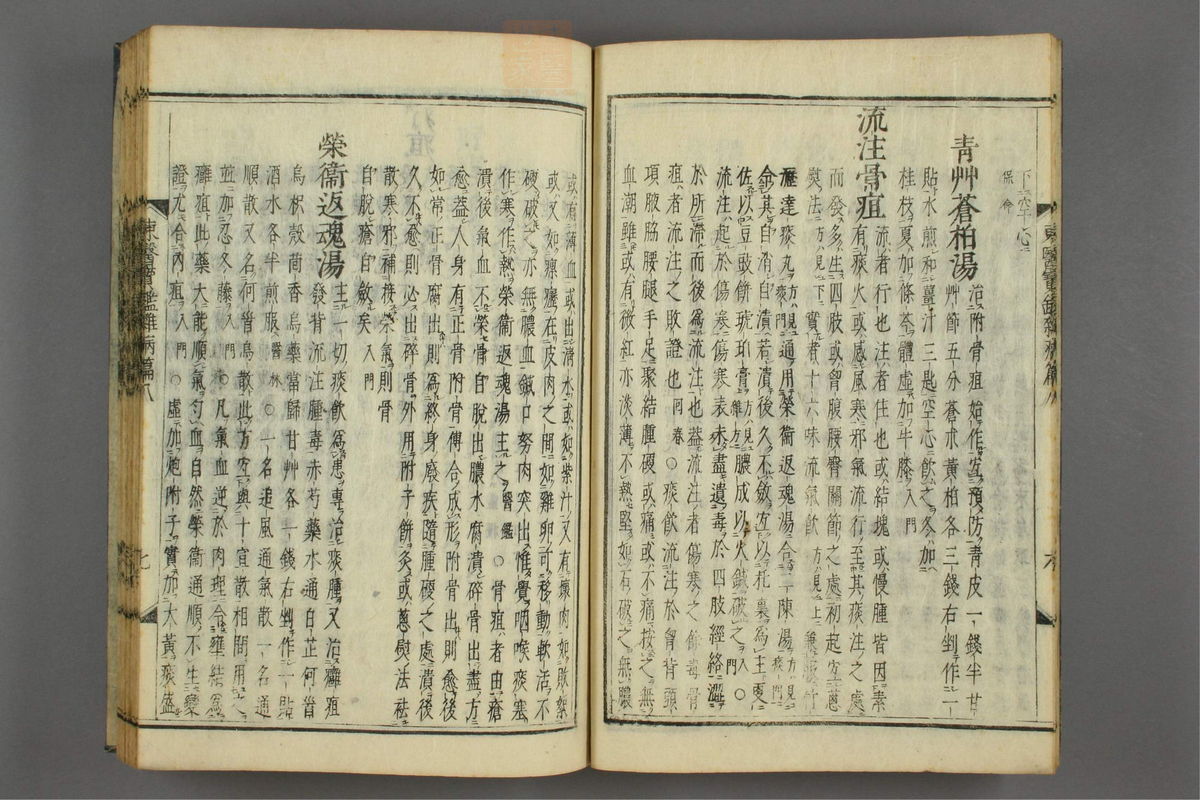 下空心
保命
青艸蒼柏湯 治附骨疽始作宜預防青皮一錢半甘
艸節五分蒼朮黃柏各三錢右剉作一
貼水煎和薑汁三匙空心飮之冬加
桂枝夏加條芩體虛加牛膝入門
流注骨疽 流者行也注者住也或結塊或慢腫皆因素
有痰火或感風寒邪氣流行至其痰注之處
而發多生四肢或胷腹腰臀關節之處初起宜葱
熨法方見下實者十六味流氣飮方見上兼服竹
瀝達痰丸方見痰門通用榮衞返魂湯合二陳湯方見痰門
令其自消自潰若潰後久不斂宜以托裏爲主更
佐以豆豉餠琥珀膏方見雜方膿成以火鍼破之入門〇
流注起於傷寒傷寒表未盡遺毒於四肢經絡澀
於所滯而後爲流注也盖流注者傷寒之餘毒骨
疽者流注之敗證也回春〇痰飮流注於胷背頭
項腋脇腰腿手足聚結腫硬或痛或不痛按之無
血潮雖或有微紅亦淡薄不熱堅如石破之無膿
或有薄血或出淸水或如紫汁又有壞肉如敗絮
或又如瘰癧在皮肉之間如雞卵可移動軟活不
硬破之亦無膿血鍼口努肉突出惟覺咽喉痰塞
作寒作熱榮衞返魂湯主之醫鑑〇骨疽者由瘡
潰後氣血不榮骨自脫出膿水腐潰碎骨出盡方
愈盖人身有正骨附骨傅合成形附骨出則愈後
如常正骨腐出則爲終身廢疾隨腫硬之處潰後
久不愈則必出碎骨外用附子餠灸或葱熨法祛
散寒邪補接榮氣則骨
自脫瘡自斂矣入門
榮衞返魂湯 主一切痰飮爲患專治痰腫又治癰疽
發背流注腫毒赤芍藥木通白芷何首
烏枳殼茴香烏藥當歸甘艸各一錢右剉作一貼
酒水各半煎服醫林〇一名追風通氣散一名通
順散又名何首烏散此方宜與十宣散相間用之
並加忍冬藤入門〇凡氣血逆於肉理合壅結爲
癰疽此藥大能順氣匀血自然榮衞通順不生變
證尤合內疽入門〇虛加炮附子實加大黃痰盛
東醫寶鑑雜病篇八
七
東醫寶鑑雜病篇八
六